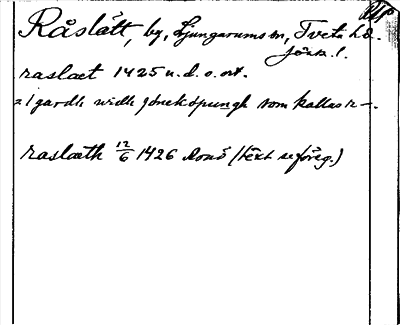 Råslätt, by, Ljungarums sn, Tveta hd.
Jönk. l.
raslaet 1425 u. d. o. ort.
= 1 gardh widh jöneköpungh som kallas r-.
raslæth 12/6 1426 Ronö (text se föreg.)